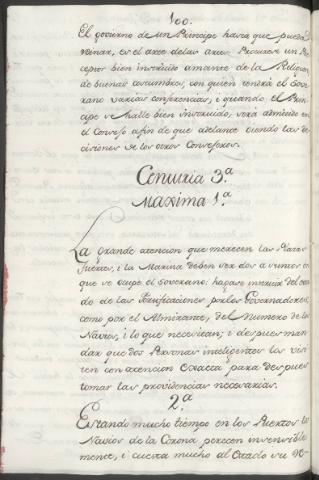 100.
El govierno de un Principe hasta que pueda
reinar, es el arte de las artes. Procurese un Pre-
ceptor bien instruido amante de la Religion,
de buenas costumbres, con quien tendrá el Sove-
rano varias conferencias, i quando el Prin-
cipe se halle bien instruido, será admitido en
el Consejo afin de que adelante oiendo las de-
cisiones de los otros Consejeros.
Centuria 3.ª
Maxima 1.ª
La grande atencion que merecen las Plazas
fuertes, i la Marina deben ser dos asuntos en
que se ocupe el Soverano: hagase instruir del esta-
do de las Fortificaciones por los Governadores,
como por el Almirante, del Numero de los
Navios, i lo que necesitan; i despues man-
dar que dos Personas inteligentes los visi-
ten con atencion exacta para despues
tomar las providencias necesarias.
2.ª
Estando mucho tiempo en los Puertos los
Navios de la Corona perecen insensible-
mente, i cuesta mucho al Estado su re-